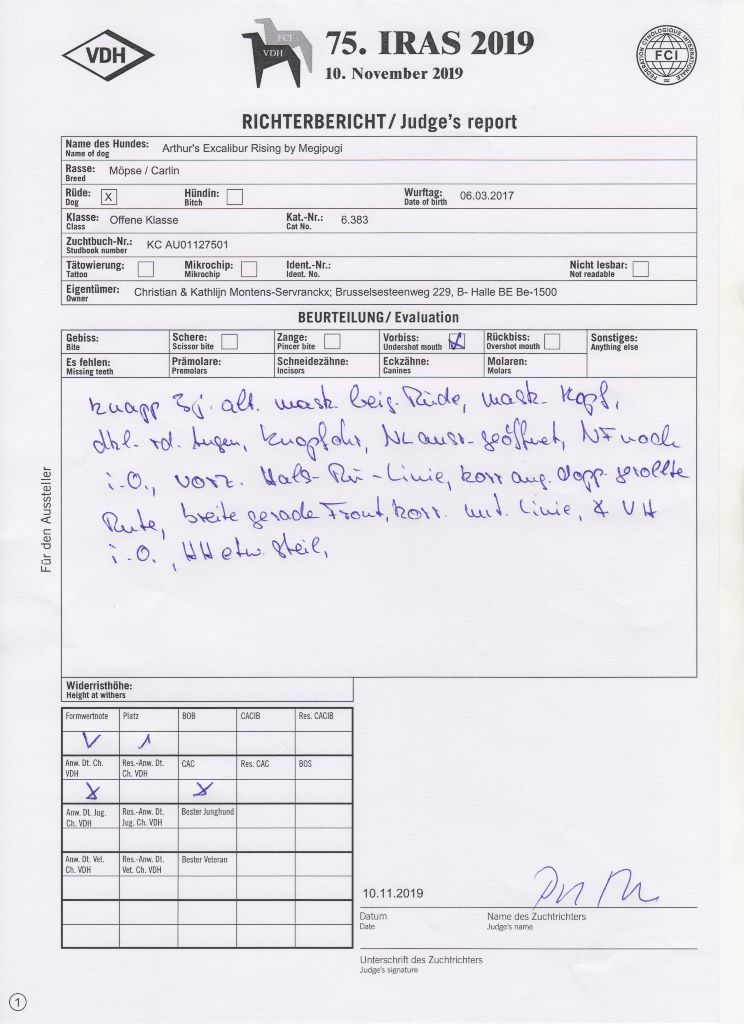 VDH
FCI
VDH
75. IRAS 2019
10. November 2019
FEDERATION CYNOLOGIQUE INTERNATIONALE
FCI
RICHTERBERICHT/ Judge's report
Name des Hundes: Arthur's Excalibur Rising by Megipugi
Name of dog
Rasse: Möpse / Carlin
Breed
Rüde: X Hündin: Wurftag: 06.03.2017
Dog Bitch Date of birth
Klasse: Offene Klasse Kat.-Nr.: 6.383
Class Cat No.
Zuchtbuch-Nr.: KC AU01127501
Studbook number
Tätowierung: Mikrochip: Ident.-Nr.: Nicht lesbar:
Tattoo Mikrochip Ident. No. Not readable
Eigentümer: Christian & Kathlijn Montens-Servranckx; Brusselsesteenweg 229, B- Halle BE Be-1500
Owner
BEURTEILUNG/ Evaluation
Gebiss: Schere: Zange: Vorbiss: X Rückbiss: Sonstiges:
Bite Scissor bite Pincer bite Undershot mouth Overshot mouth Anything else
Es fehlen: Prämolare: Schneidezähne: Eckzähne: Molaren:
Missing teeth Premolars Incisors Canines Molars
knapp 3j. alt. mask. beig. Rüde, mask. Kopf,
dkl. rd. Augen, Knopfohr, NL ausr. geöffnet, NF noch
i.O., vorz. Hals-Rü-Linie, korr. ang. dopp. gerollte
Rute, breite gerade Front, korr. unt. Linie, & VH
i.O., HH etw. steil,
Für den Aussteller
Widerristhöhe:
Height at withers
Formwertnote Platz BOB CACIB Res. CACIB
V 1
Anw. Dt. Ch. Res.-Anw. Dt. CAC Res. CAC BOS
VDH Ch. VDH
X X
Anw. Dt. Jug. Res.-Anw. Dt. Bester Junghund
Ch. VDH Jug. Ch. VDH
Anw. Dt. Vet. Res.-Anw. Dt. Bester Veteran
Ch. VDH Vet. Ch. VDH
10.11.2019
Datum Name des Zuchtrichters
Date Judge's name
Unterschrift des Zuchtrichters
Judge's signature
1